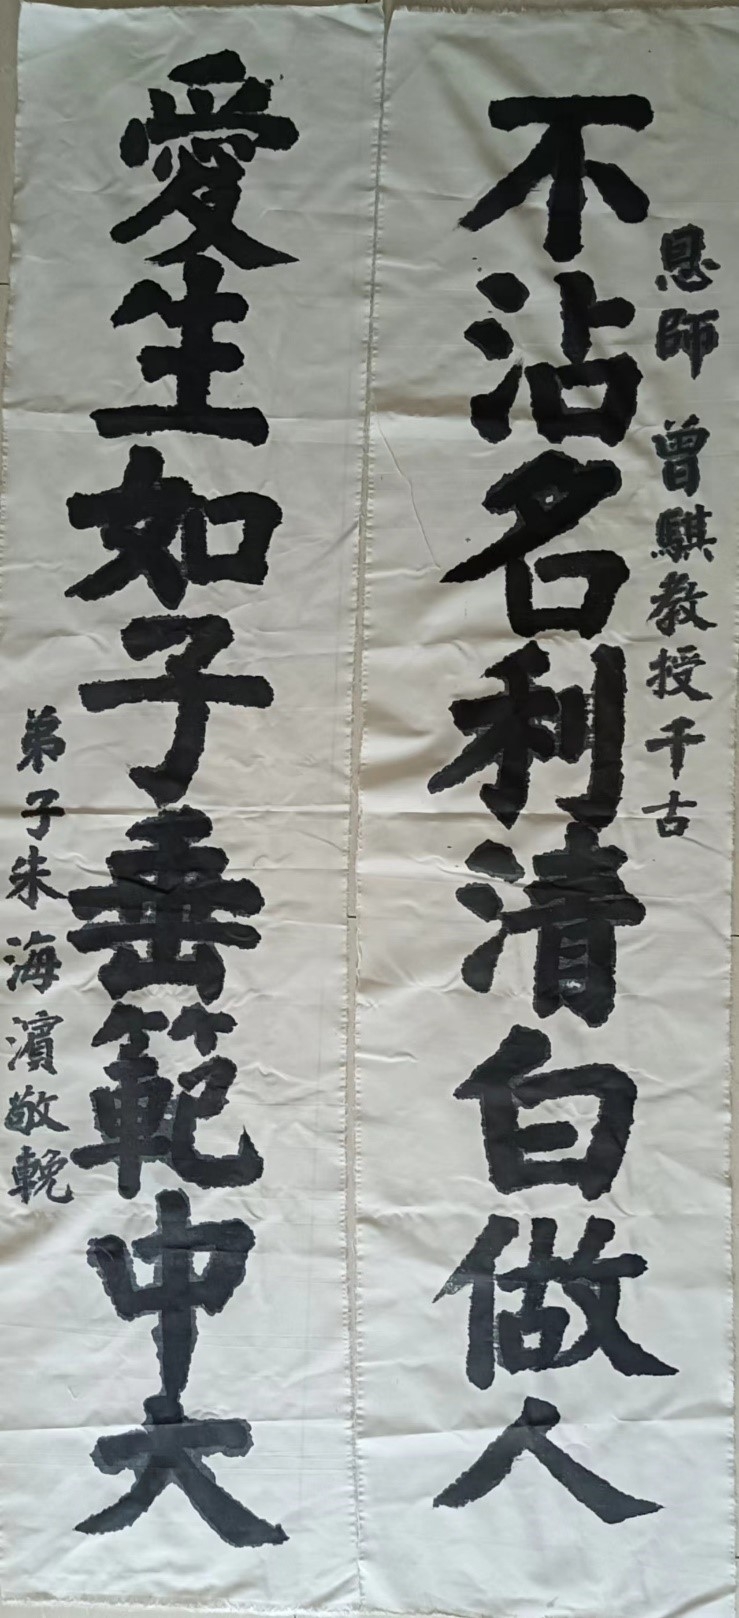 恩師 曾騏教授千古
不沾名利清白做人
愛生如子垂範中大
弟子朱海濱敬輓